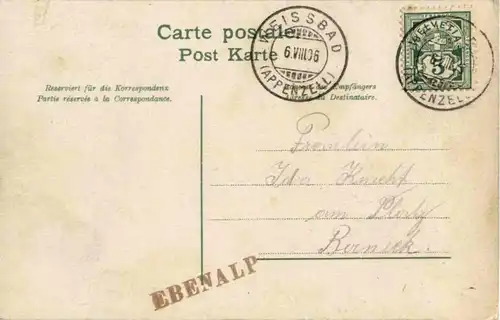 Carte postale
Post Karte
WEISSBAD
6.VIII.06
(APPENZELL)
HELVETIA
5
Reserviert für die Korrespondenz
Partie réservée à la Correspondance.
des Empfängers
du Destinataire.
Fräulein
Ida Knecht
am Platz
Berneck.
EBENALP